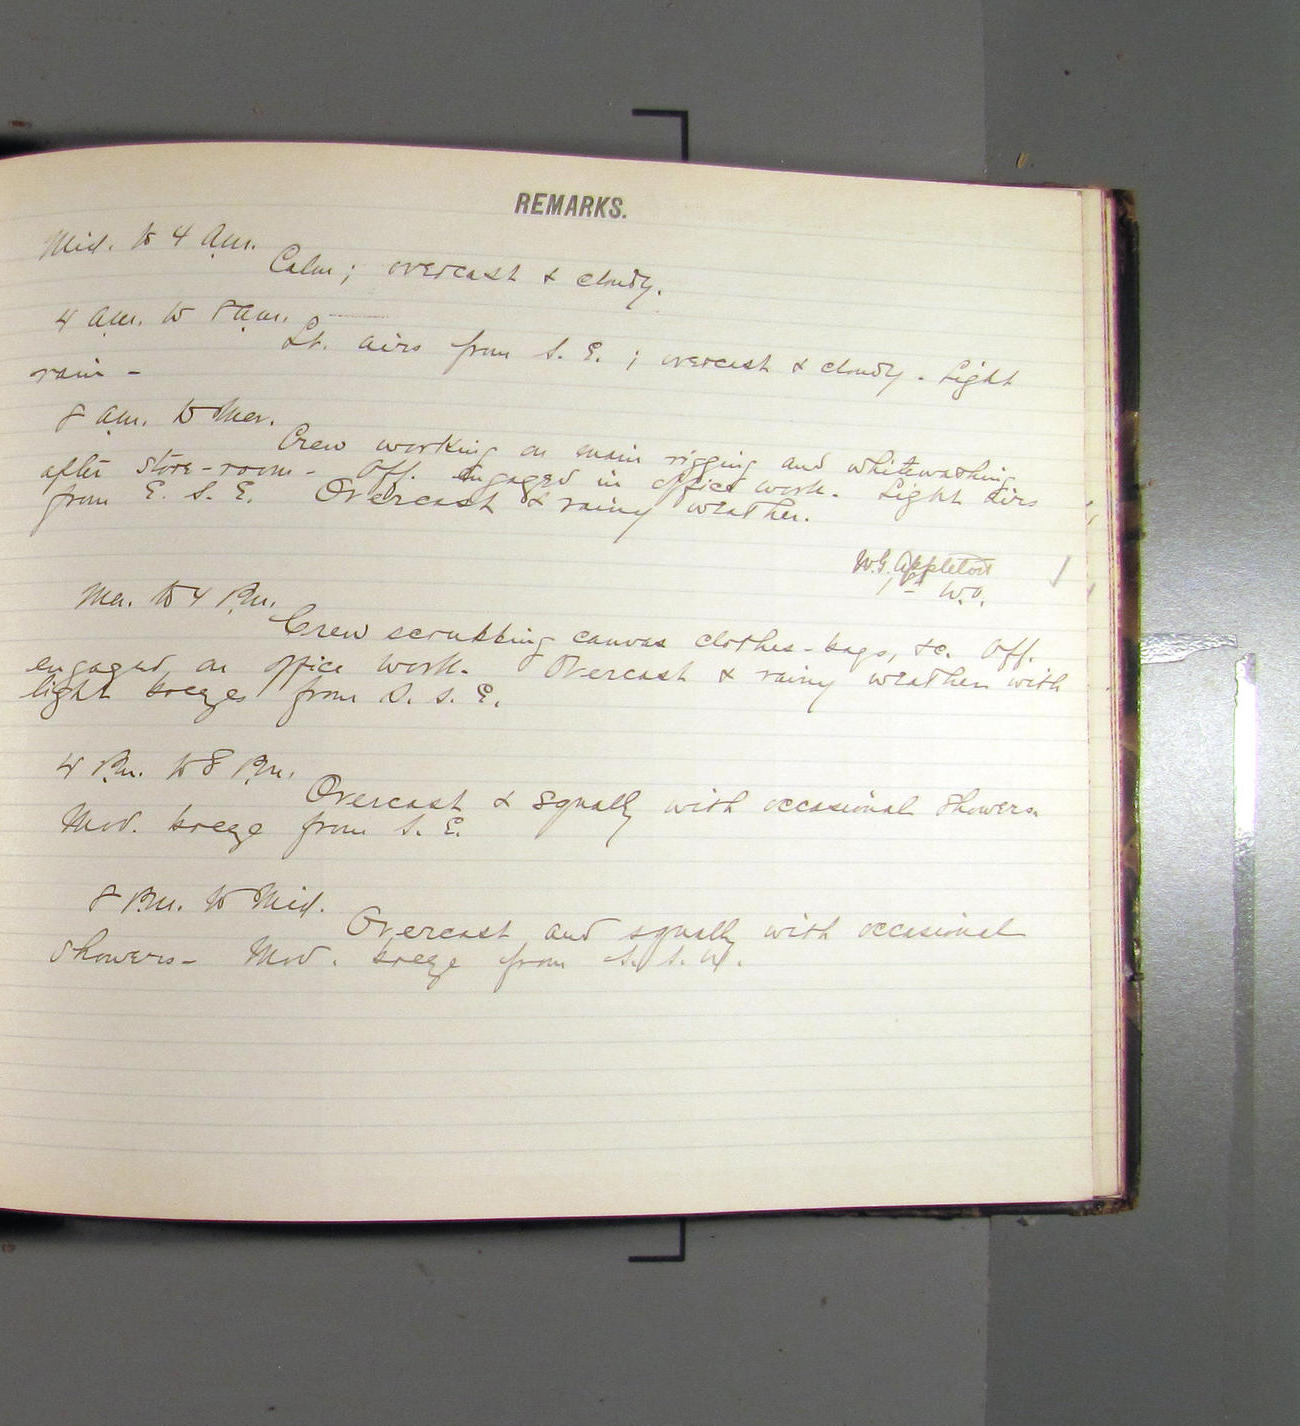 REMARKS.
Mid. to 4 a.m.
Calm; overcast & cloudy.
4 a.m. to 8 a.m.
Lt. airs from S. E.; overcast & cloudy. Light
rain -
8 a.m. to Mer.
Crew working on main rigging and whitewashing
after store-room - Off. engaged in office work. Light airs
from E. S. E. Overcast & rainy weather.
W.G. Appleton
1st W.O.
Mer. to 4 P.m.
Crew scrubbing canvas clothes-bags, &c. Off.
engaged on office work. Overcast & rainy weather with
light breezes from S. S. E.
4 P.m. to 8 P.m.
Overcast & squally with occasional showers.
Mod. breeze from S. E.
8 P.m. to Mid.
Overcast and squally with occasional
showers - Mod. breeze from S. S. W.